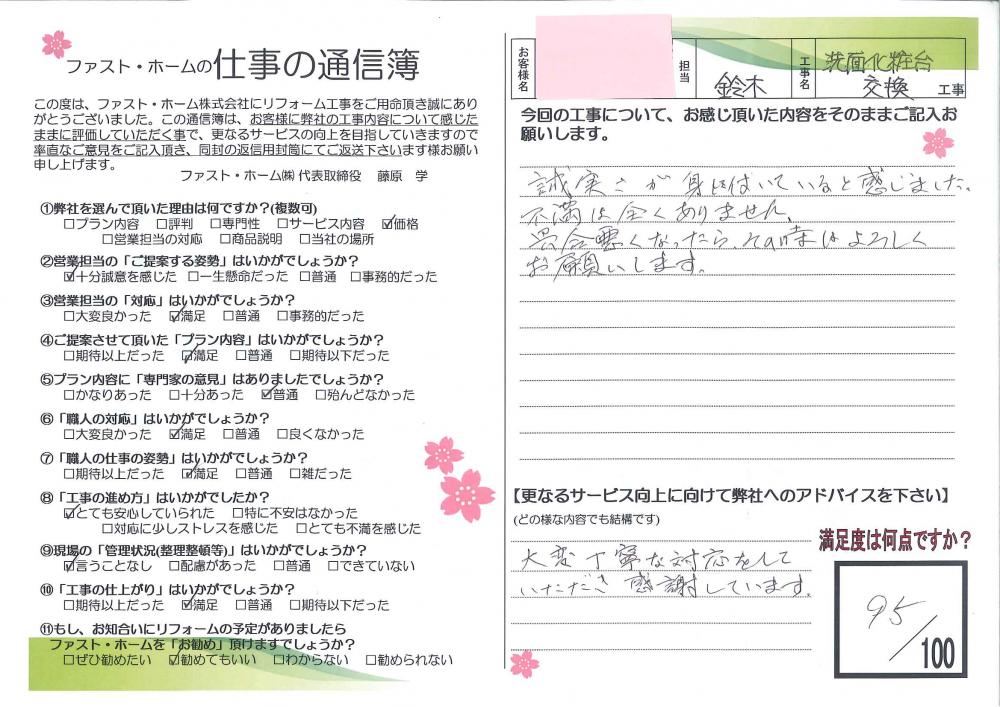 ファスト・ホームの仕事の通信簿
この度は、ファスト・ホーム株式会社にリフォーム工事をご用命頂き誠にあり
がとうございました。この通信簿は、お客様に弊社の工事内容について感じた
ままに評価していただく事で、更なるサービスの向上を目指していきますので
率直なご意見をご記入頂き、同封の返信用封筒にてご返送下さいます様お願い
申し上げます。
ファスト・ホーム㈱ 代表取締役 藤原 学
①弊社を選んで頂いた理由は何ですか？(複数可)
□プラン内容 □評判 □専門性 □サービス内容 ☑価格
□営業担当の対応 □商品説明 □当社の場所
②営業担当の「ご提案する姿勢」はいかがでしょか？
☑十分誠意を感じた □一生懸命だった □普通 □事務的だった
③営業担当の「対応」はいかがでしょうか？
□大変良かった ☑満足 □普通 □事務的だった
④ご提案させて頂いた「プラン内容」はいかがでしょうか？
□期待以上だった ☑満足 □普通 □期待以下だった
⑤プラン内容に「専門家の意見」はありましたでしょうか？
□かなりあった □十分あった ☑普通 □殆んどなかった
⑥「職人の対応」はいかがでしょうか？
□大変良かった ☑満足 □普通 □良くなかった
⑦「職人の仕事の姿勢」はいかがでしょうか？
□期待以上だった ☑満足 □普通 □雑だった
⑧「工事の進め方」はいかがでしたか？
☑とても安心していられた □特に不安はなかった
□対応に少しストレスを感じた □とても不満を感じた
⑨現場の「管理状況(整理整頓等)」はいかがでしょうか？
☑言うことなし □配慮があった □普通 □できていない
⑩「工事の仕上がり」はいかがでしょうか？
□期待以上だった ☑満足 □普通 □期待以下だった
⑪もし、お知合いにリフォームの予定がありましたら
ファスト・ホームを「お勧め」頂けますでしょうか？
□ぜひ勧めたい ☑勧めてもいい □わからない □勧められない
お客様名
担当
鈴木
工事名
洗面化粧台
交換 工事
今回の工事について、お感じ頂いた内容をそのままご記入お
願いします。
誠実さが身に付いていると感じました。
不満は全くありません。
具合悪くなったら、その時はよろしく
お願いします。
【更なるサービス向上に向けて弊社へのアドバイスを下さい】
(どの様な内容でも結構です)
大変丁寧な対応をして
いただき感謝しています。
満足度は何点ですか？
95/100